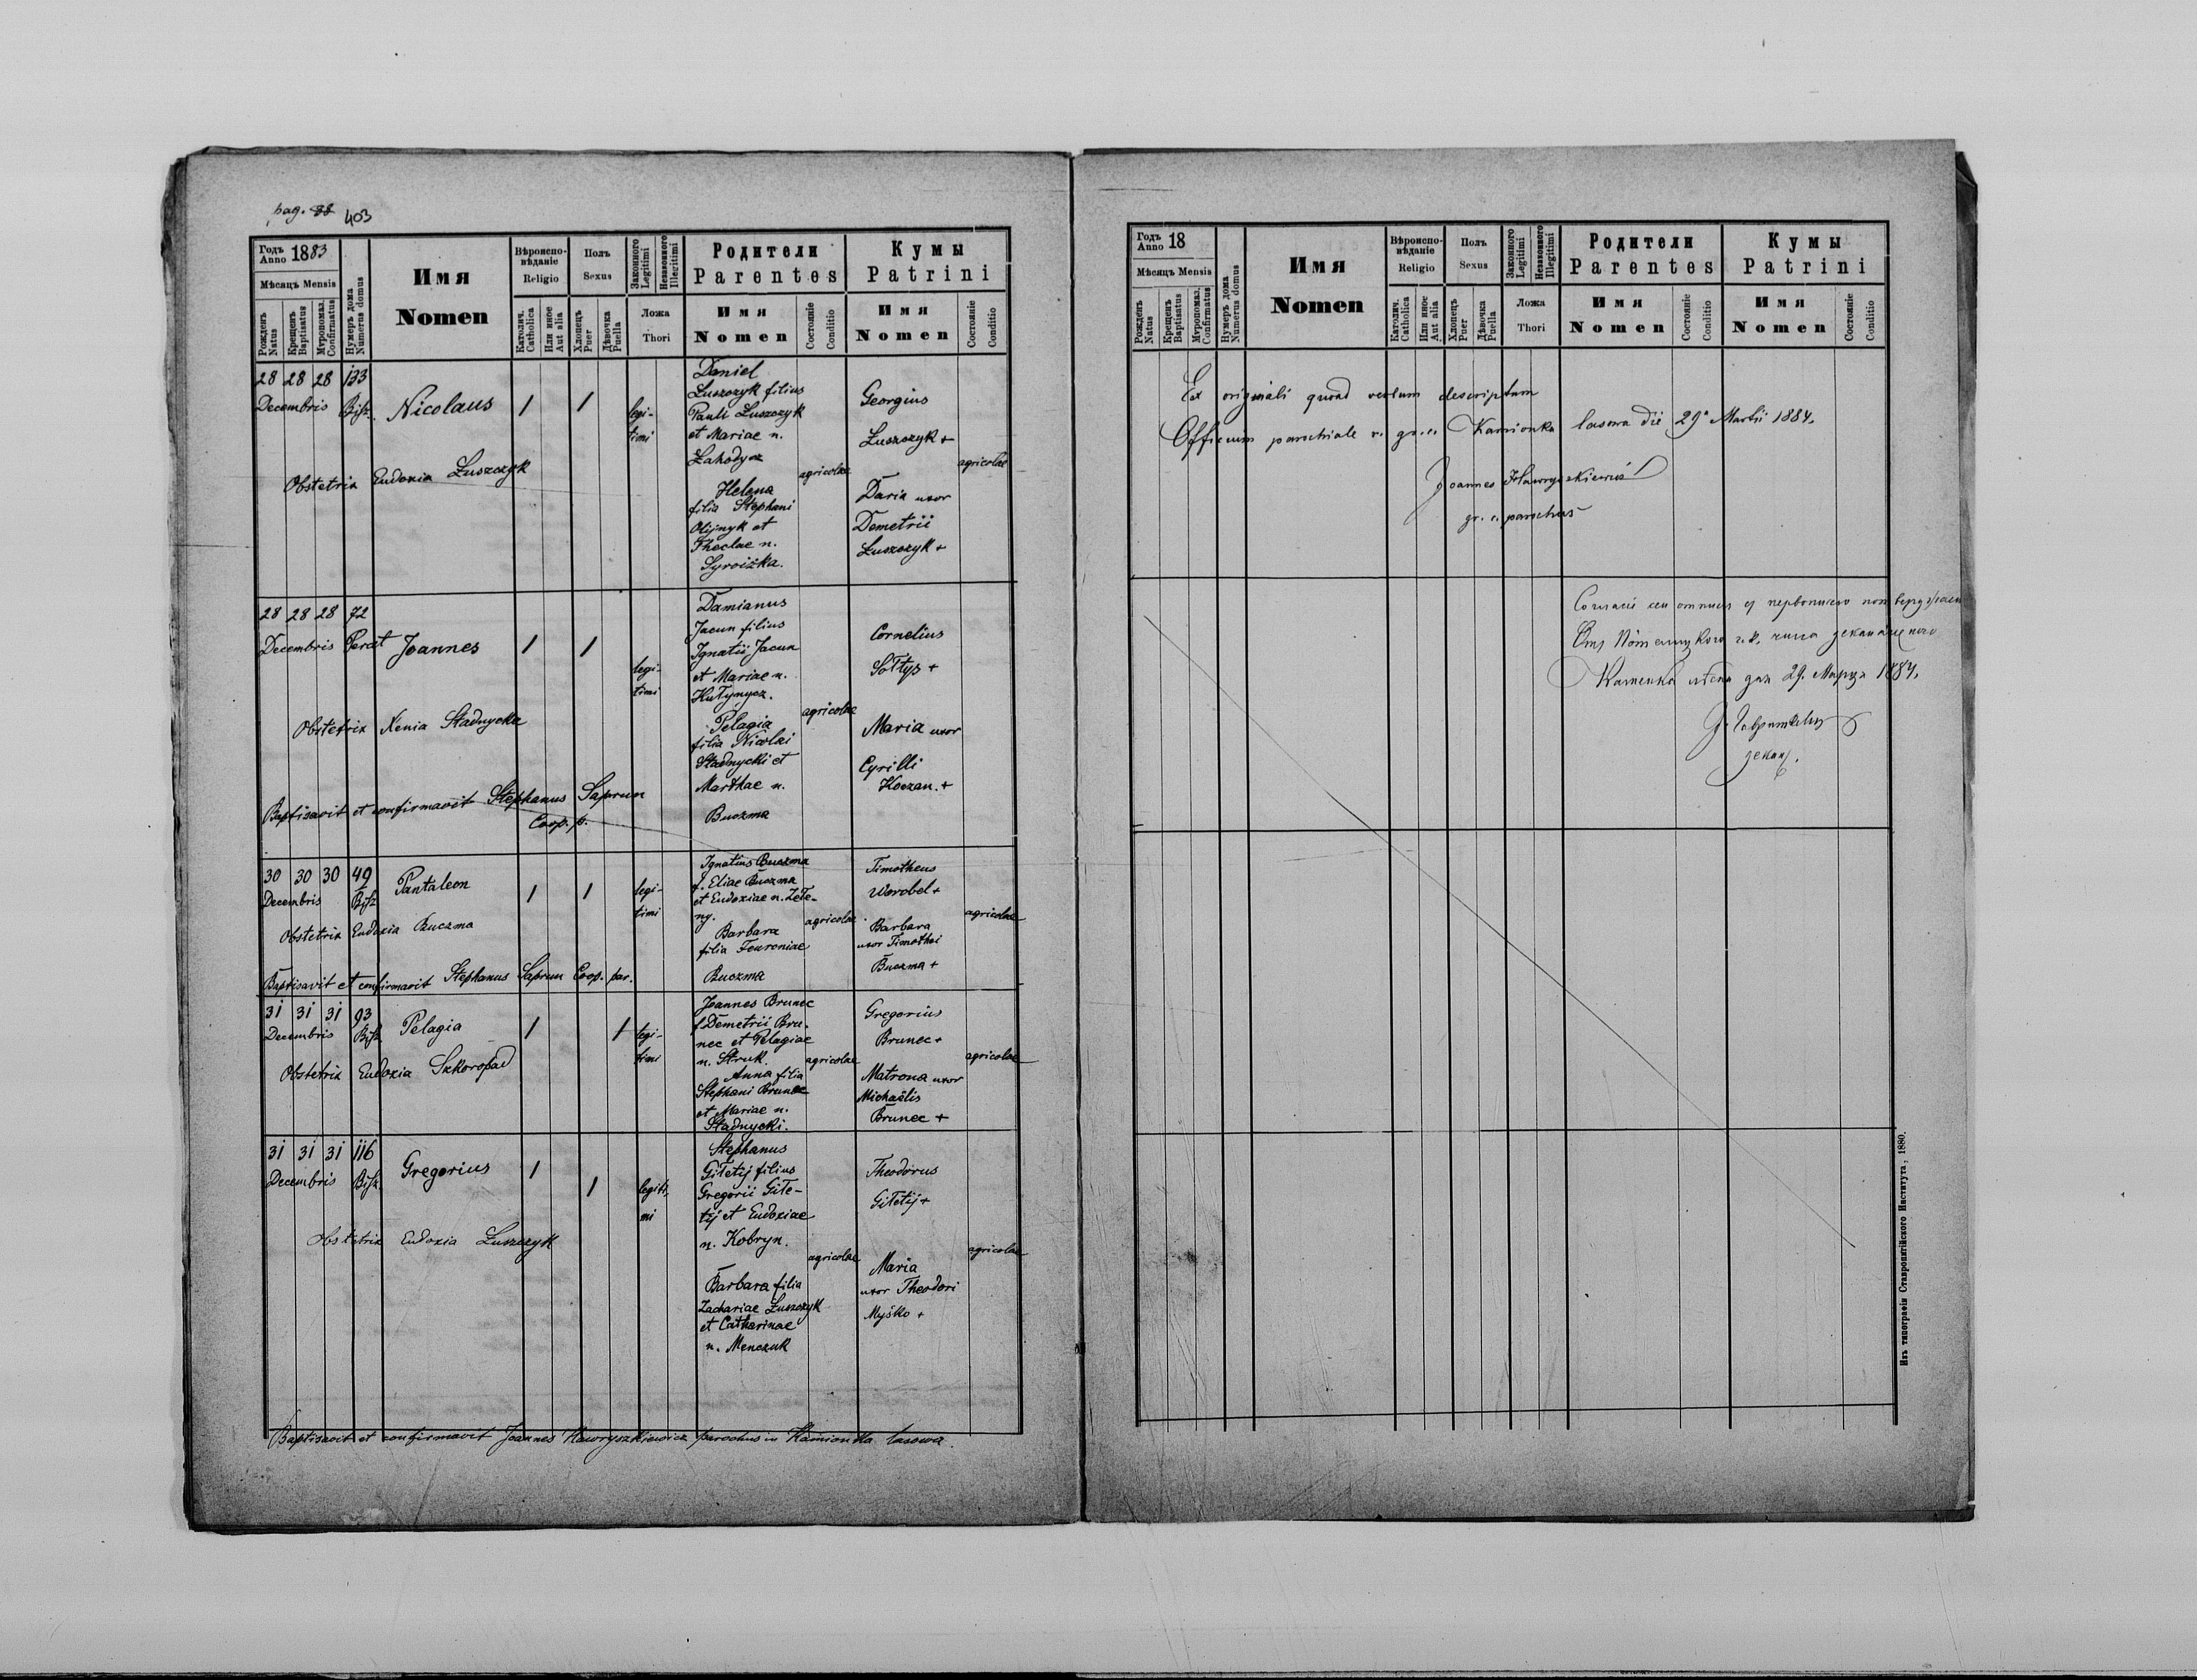 pag. 88 403
Годъ Anno 1883
Мѣсяцъ Mensis
Рожденъ Natus
Крещенъ Baptisatus
Мѵропомаз. Confirmatus
Нумеръ дома Numerus domus
Имя
Nomen
Вѣроиспо-
вѣданіе
Religio
Католич. Catholica
Или иное Aut alia
Полъ
Sexus
Хлопецъ Puer
Дѣвочка Puella
Законного Legitimi
Незаконного Illegitimi
Ложа
Thori
Родители
Parentes
Имя
Nomen
Состояніе Conditio
Кумы
Patrini
Имя
Nomen
Состояніе Conditio
28 28 28 133
Decembris
Nicolaus / /
legi-
timi
Daniel
Łuszczyk filius
Pauli Łuszczyk
et Mariae n.
Zahodycz
agricolae
Helena
filia Stephani
Olijnyk et
Theclae n.
Syroiżka.
Georgius
Łuszczyk +
agricolae
Daria uxor
Demetrii
Łuszczyk +
Obstetrix Eudoxia Łuszczyk
28 28 28 72
Decembris
Joannes / /
legi-
timi
Damianus
Jacun filius
Ignatii Jacun
et Mariae n.
Kułynycz.
agricolae
Pelagia
filia Nicolai
Stadnycki et
Marthae n.
Buczma
Cornelius
Sołtys +
Maria uxor
Cyrilli
Koczan. +
Obstetrix Xenia Stadnycka
Baptisavit et confirmavit Stephanus Saprun
Coop. p.
30 30 30 49
Decembris
Pantaleon / /
legi-
timi
Ignatius Buczma
f. Eliae Buczma
et Eudoxiae n. Zełe-
ny.
agricolae
Barbara
filia Fevroniae
Buczma
Timotheus
Worobel +
agricolae
Barbara
uxor Timothei
Buczma +
Obstetrix Eudoxia Buczma
Baptisavit et confirmavit Stephanus Saprun Coop. par.
31 31 31 93
Decembris
Pelagia / /
legi-
timi
Joannes Brunec
f. Demetrii Bru-
nec et Pelagiae
n. Struk.
agricolae
Anna filia
Stephani Brunec
et Mariae n.
Stadnycki.
Gregorius
Brunec +
agricolae
Matrona uxor
Michaëlis
Brunec +
Obstetrix Eudoxia Szkoropad
31 31 31 116
Decembris
Gregorius / /
legiti-
mi
Stephanus
Giłetij filius
Gregorii Giłe-
tij et Eudoxiae
n. Kobryn.
agricolae
Barbara filia
Zachariae Łuszczyk
et Catharinae
n. Menczuk
Theodorus
Giłetij +
agricolae
Maria
uxor Theodori
Myśko +
Obstetrix Eudoxia Łuszczyk
Baptisavit et confirmavit Joannes Hawryszkiewicz parochus in Kamionka lasowa.
Годъ Anno 18
Мѣсяцъ Mensis
Рожденъ Natus
Крещенъ Baptisatus
Мѵропомаз. Confirmatus
Нумеръ дома Numerus domus
Имя
Nomen
Вѣроиспо-
вѣданіе
Religio
Католич. Catholica
Или иное Aut alia
Полъ
Sexus
Хлопецъ Puer
Дѣвочка Puella
Законного Legitimi
Незаконного Illegitimi
Ложа
Thori
Родители
Parentes
Имя
Nomen
Состояніе Conditio
Кумы
Patrini
Имя
Nomen
Состояніе Conditio
Ex originali quoad verbum descriptum
Officium parochiale r. gr. c. Kamionka lasowa die 29ª Martii 1884.
Joannes Hawryszkiewicz
gr. c. parochus
Каменка дня 29. Марта 1884.
декан.
Изъ типографіи Ставропигійского Института, 1880.